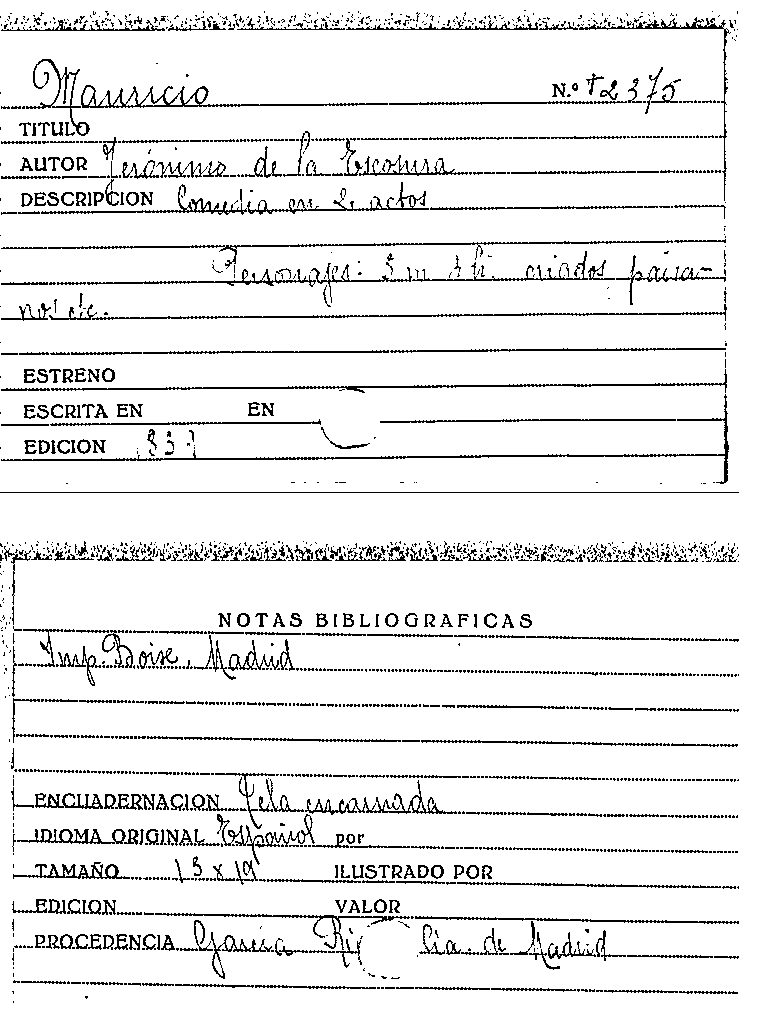 Mauricio N.º T2375
TITULO
AUTOR Jerónimo de la Escosura
DESCRIPCION Comedia en 2 actos
Personajes: 3 h. criados paisa-
nos etc.
ESTRENO
ESCRITA EN EN
EDICION
NOTAS BIBLIOGRAFICAS
Imp. Boise, Madrid
ENCUADERNACION Tela encarnada
IDIOMA ORIGINAL Español por
TAMAÑO 13 x 19 ILUSTRADO POR
EDICION VALOR
PROCEDENCIA García Ri Cia. de Madrid